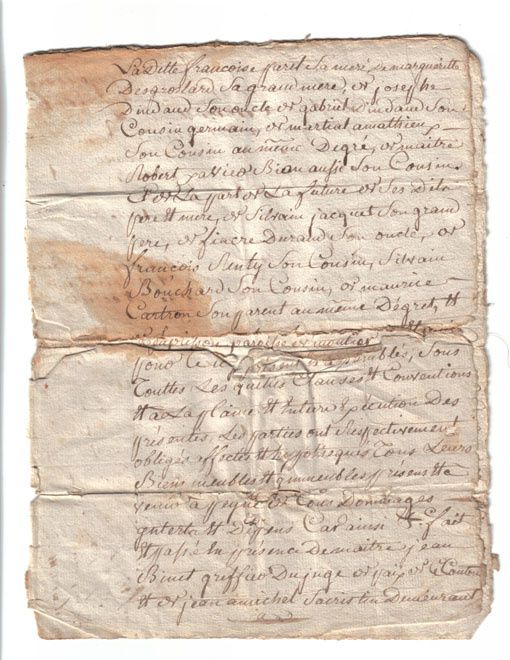 La ditte francoise petit Sa mere, de marguerite
Desgrolard Sa grand mere, & joseph
dindaud Son oncle & gabriel dindaud Son
Cousin germain, & martial amathieu
Son Cousin au meme Degré, & maitre
Robert Bien aussi Son Cousin
Et de La part de La future de Ses Dits
pere & mere, & Silvain jacquet Son grand
pere, & fiacre Durand Son oncle, &
francois Son Cousin, Silvain
Bouchard Son Cousin, & maurice
Cartron Son parent au même Dégret, &
paroisse
Sous
Touttes Les quelles Clauses & Conventions
& a La plaine & Entiere Execution Des
présentes, Les parties ont Respectivement
obligés affectés & hypotequés Tous Leurs
Biens meubles & immeubles presens & a
venir a peyne de Tous Dommages
interta & Dépens Car ainsi & fait
& passé En presence de maitre jean
Binet greffier Du juge de paix de Ce Canton
& de jean amichel Sacristin Demeurant